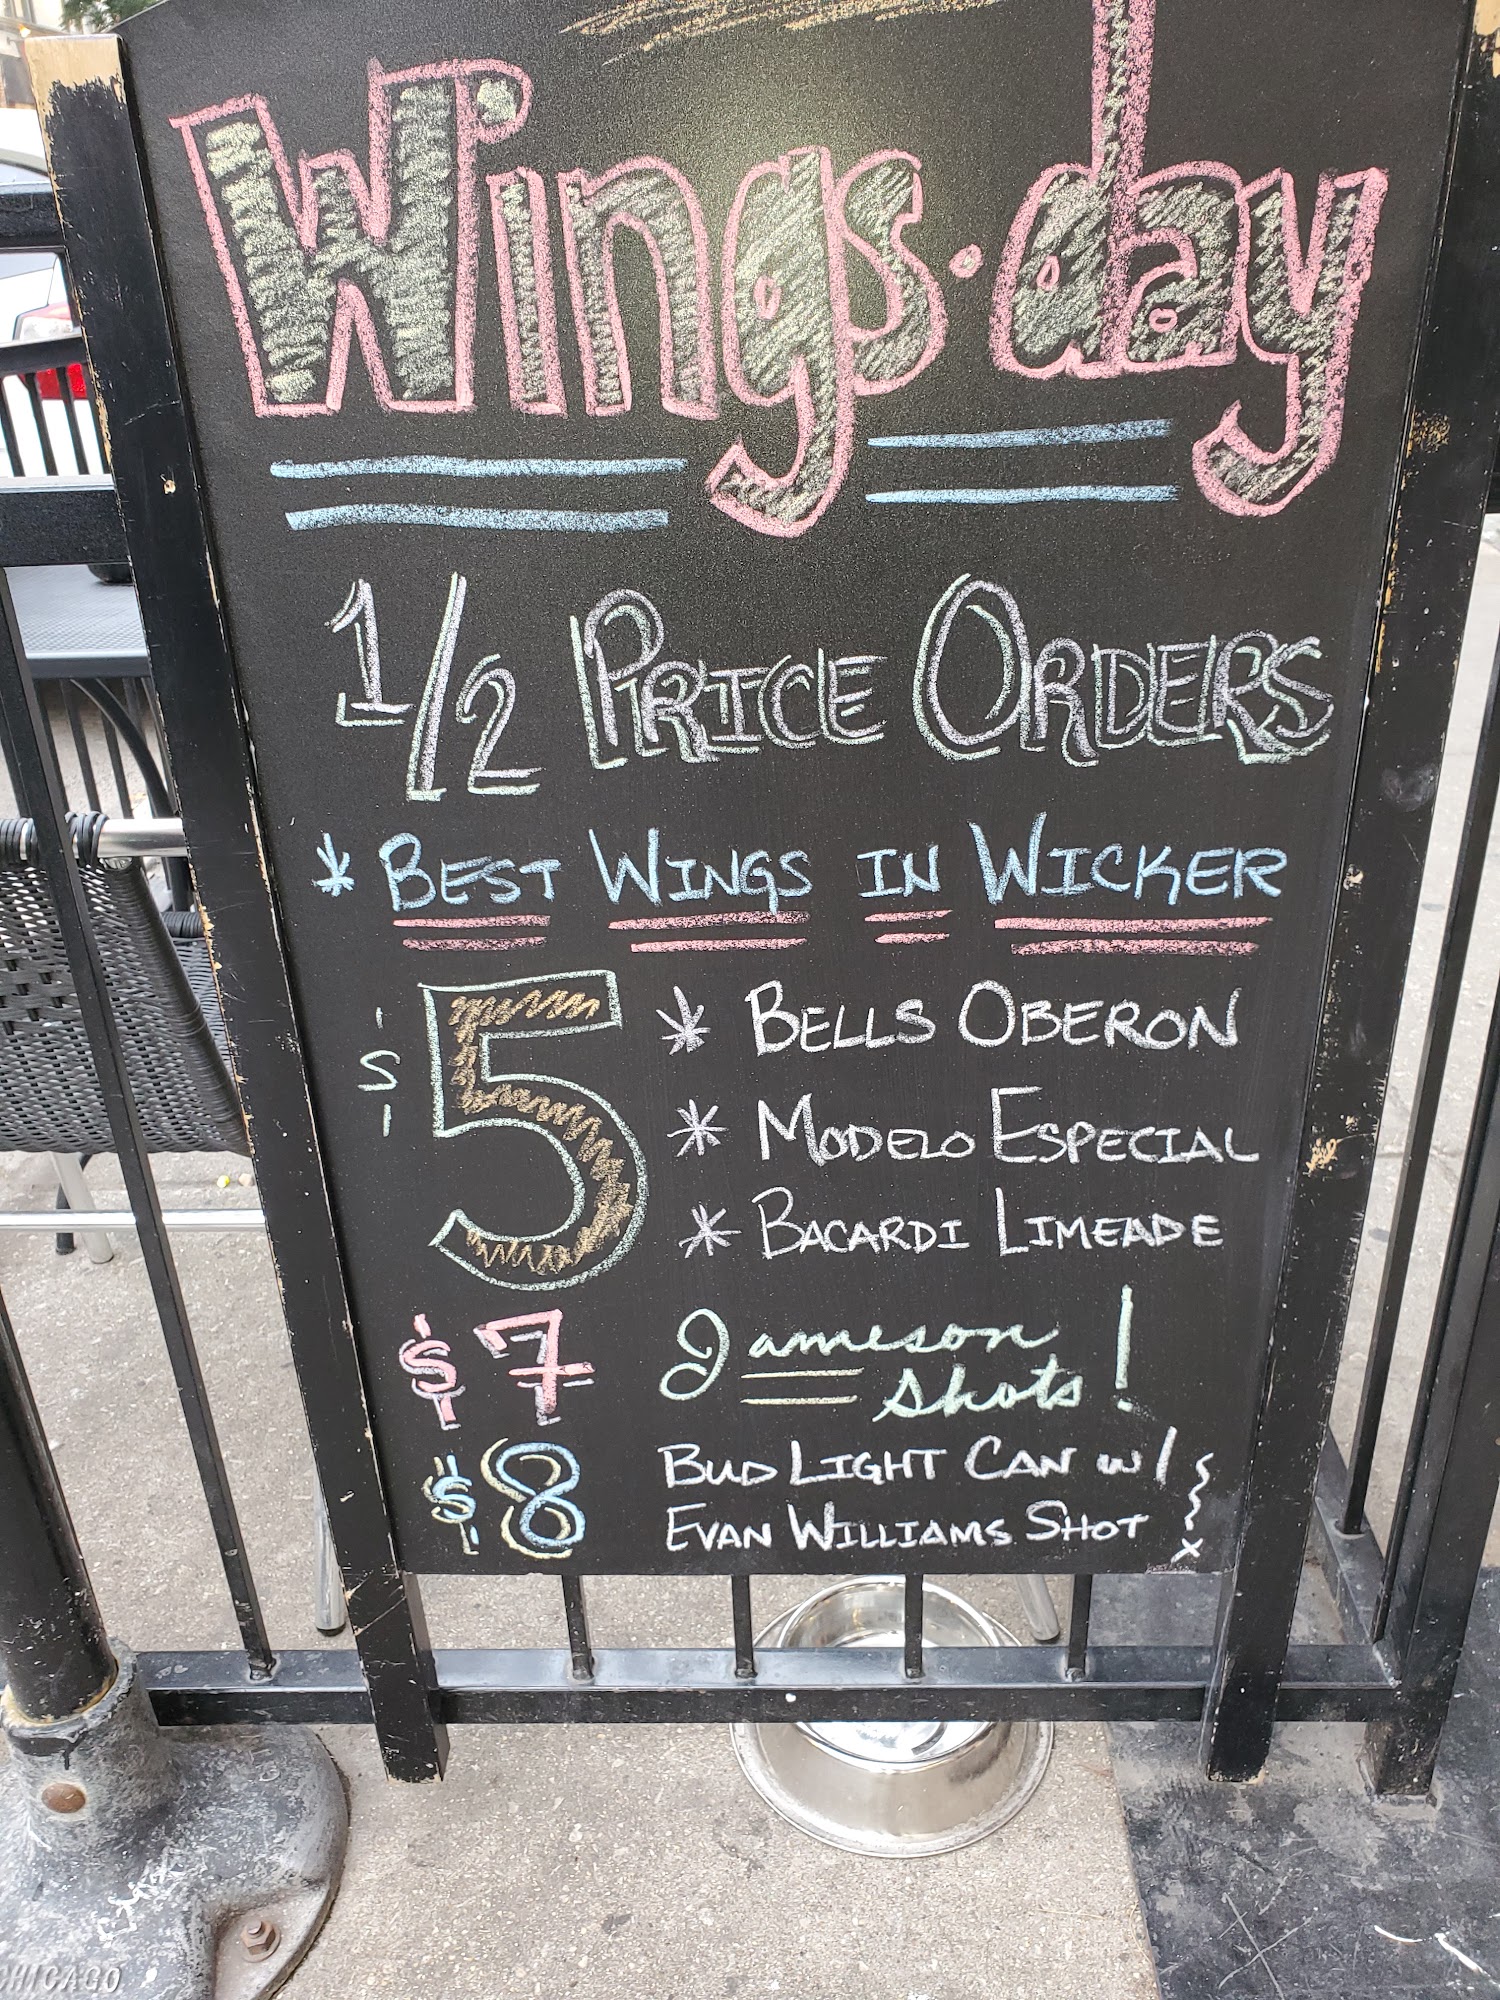 Wings·day
1/2 PRICE ORDERS
* BEST WINGS IN WICKER
$5 * BELLS OBERON
* MODELO ESPECIAL
* BACARDI LIMEADE
$7 Jameson
Shots!
$8 BUD LIGHT CAN w/
EVAN WILLIAMS SHOT
CHICAGO